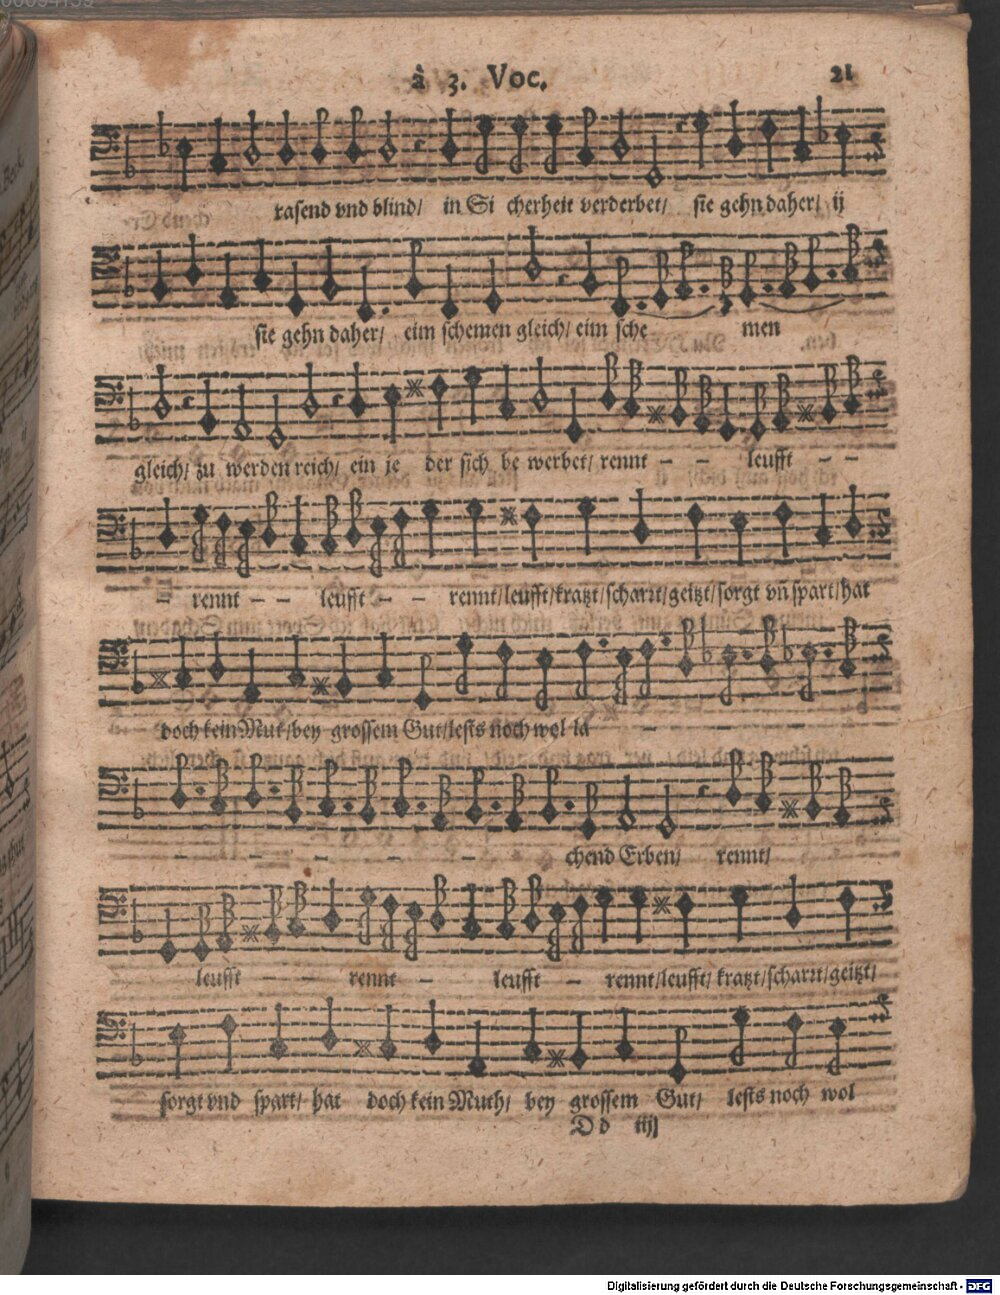 à 3. Voc. 21
rasend vnd blind/ in Si cherheit verderbet/ sie gehn daher/ ij
sie gehn daher/ eim schemen gleich/ eim sche men
gleich/ zu werden reich/ ein je der sich be werbet/ rennt – – leufft – –
– rennt – – leufft – – rennt/leufft/kratzt/scharrt/geitzt/sorgt vñ spart/hat
doch kein Mut/bey grossem Gut/lests noch wol la –
– – – – – chend Erben/ rennt/
leufft – – rennt – leufft – rennt/leufft/kratzt/scharrt/geitzt/
sorgt vnd spart/ hat doch kein Muth/ bey grossem Gut/ lests noch wol
D d iiij
Digitalisierung gefördert durch die Deutsche Forschungsgemeinschaft - DFG